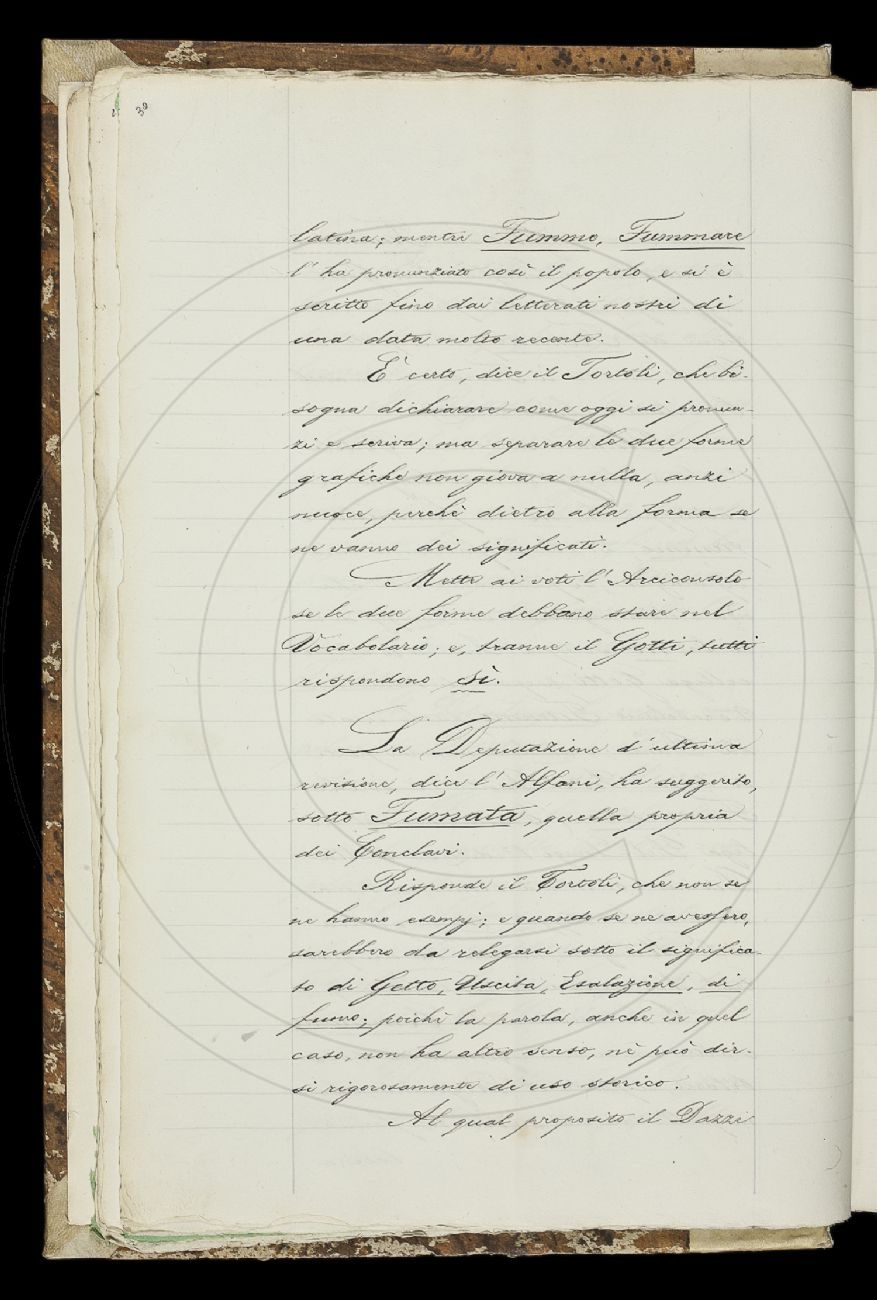 30
latina; mentre Fummo, Fummare
l' ha pronunziato così il popolo, e si è
scritto fino dai letterati nostri di
una data molto recente.
È certo, dice il Tortoli, che bi-
sogna dichiarare come oggi si pronun-
zi e scriva; ma separare le due forme
grafiche non giova a nulla, anzi
nuoce, perchè dietro alla forma se
ne vanno dei significati.
Mette ai voti l' Arciconsolo
se le due forme debbano stare nel
Vocabolario; e, tranne il Gotti, tutti
rispondono sì.
La Deputazione d' ultima
revisione, dice l' Alfani, ha suggerito,
sotto Fumata, quella propria
dei Conclavi.
Risponde il Tortoli, che non se
ne hanno esempj; e quando se ne avessero,
sarebbero da relegarsi sotto il significa-
to di Getto, Uscita, Esalazione, di
fumo; poichè la parola, anche in quel
caso, non ha altro senso, nè può dir-
si rigorosamente di uso storico.
Al qual proposito il Dazzi